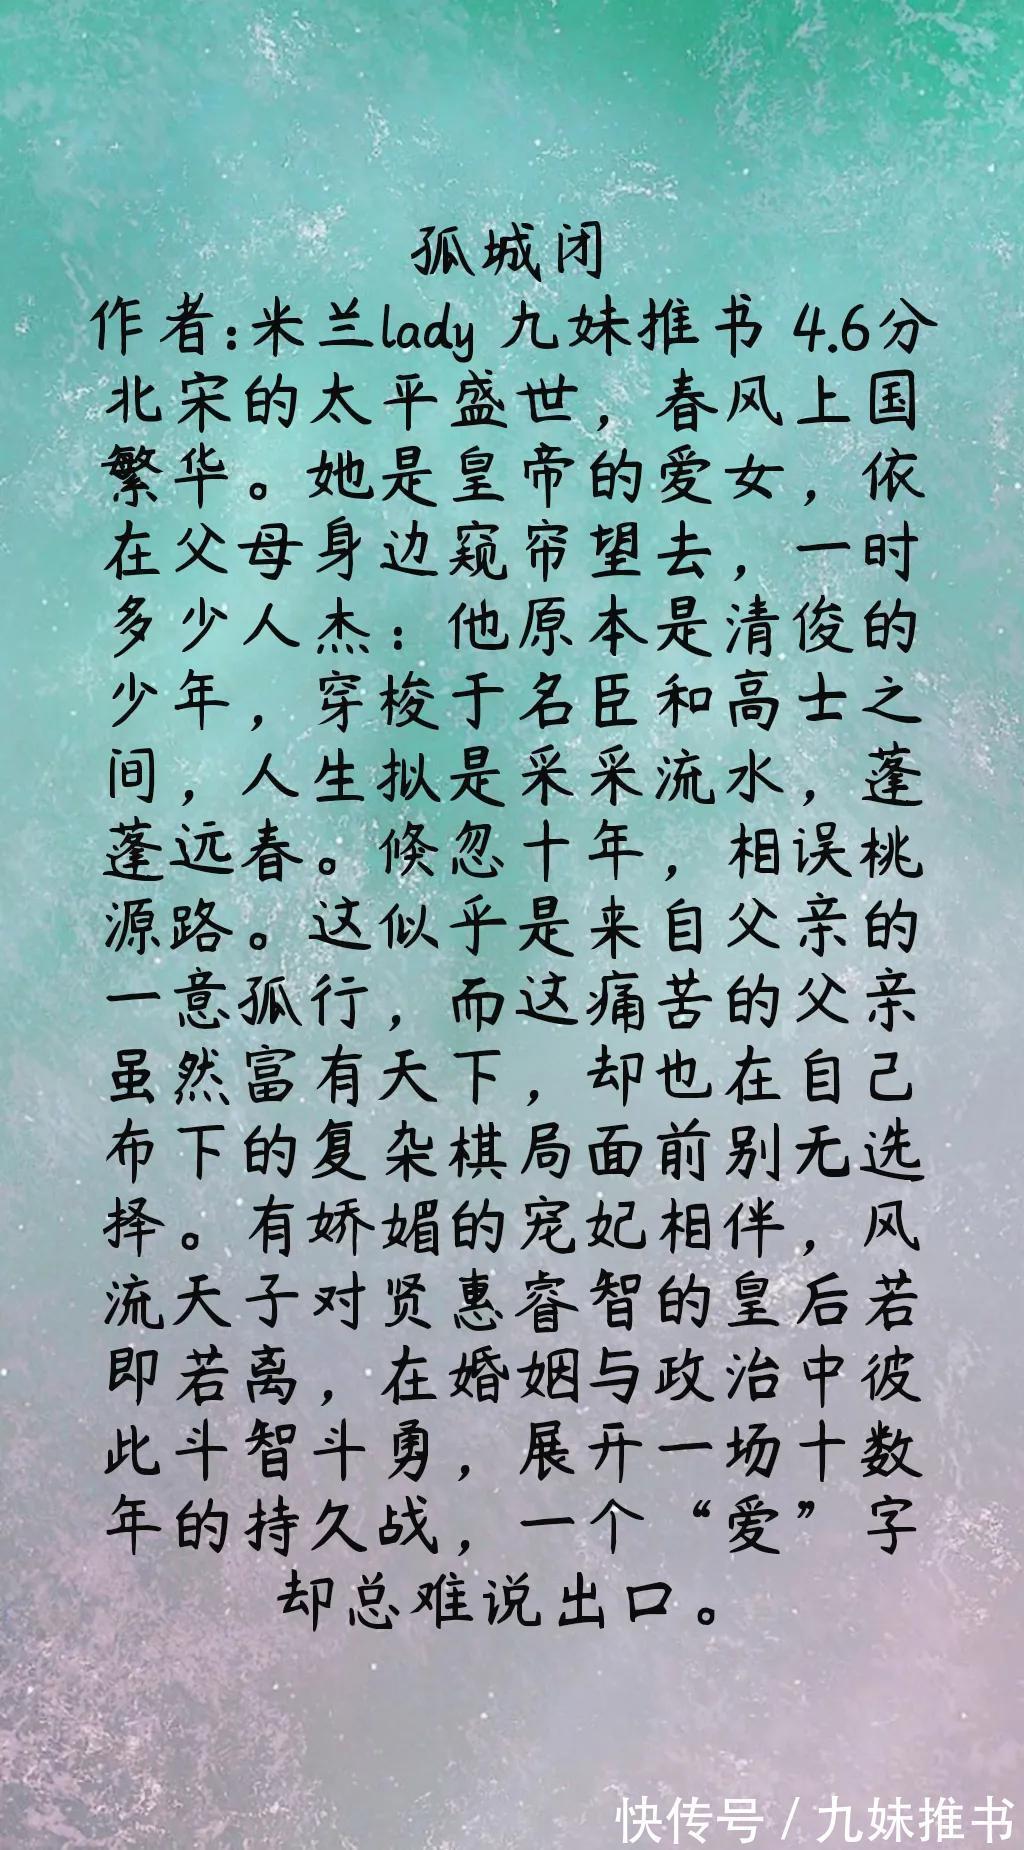 孤城闭
作者:米兰lady 九妹推书 4.6分
北宋的太平盛世，春风上国
繁华。她是皇帝的爱女，依
在父母身边窥帘望去，一时
多少人杰：他原本是清俊的
少年，穿梭于名臣和高士之
间，人生拟是采采流水，蓬
蓬远春。倏忽十年，相误桃
源路。这似乎是来自父亲的
一意孤行，而这痛苦的父亲
虽然富有天下，却也在自己
布下的复杂棋局面前别无选
择。有娇媚的宠妃相伴，风
流天子对贤惠睿智的皇后若
即若离，在婚姻与政治中彼
此斗智斗勇，展开一场十数
年的持久战，一个“爱”字
却总难说出口。
快传号/九妹推书